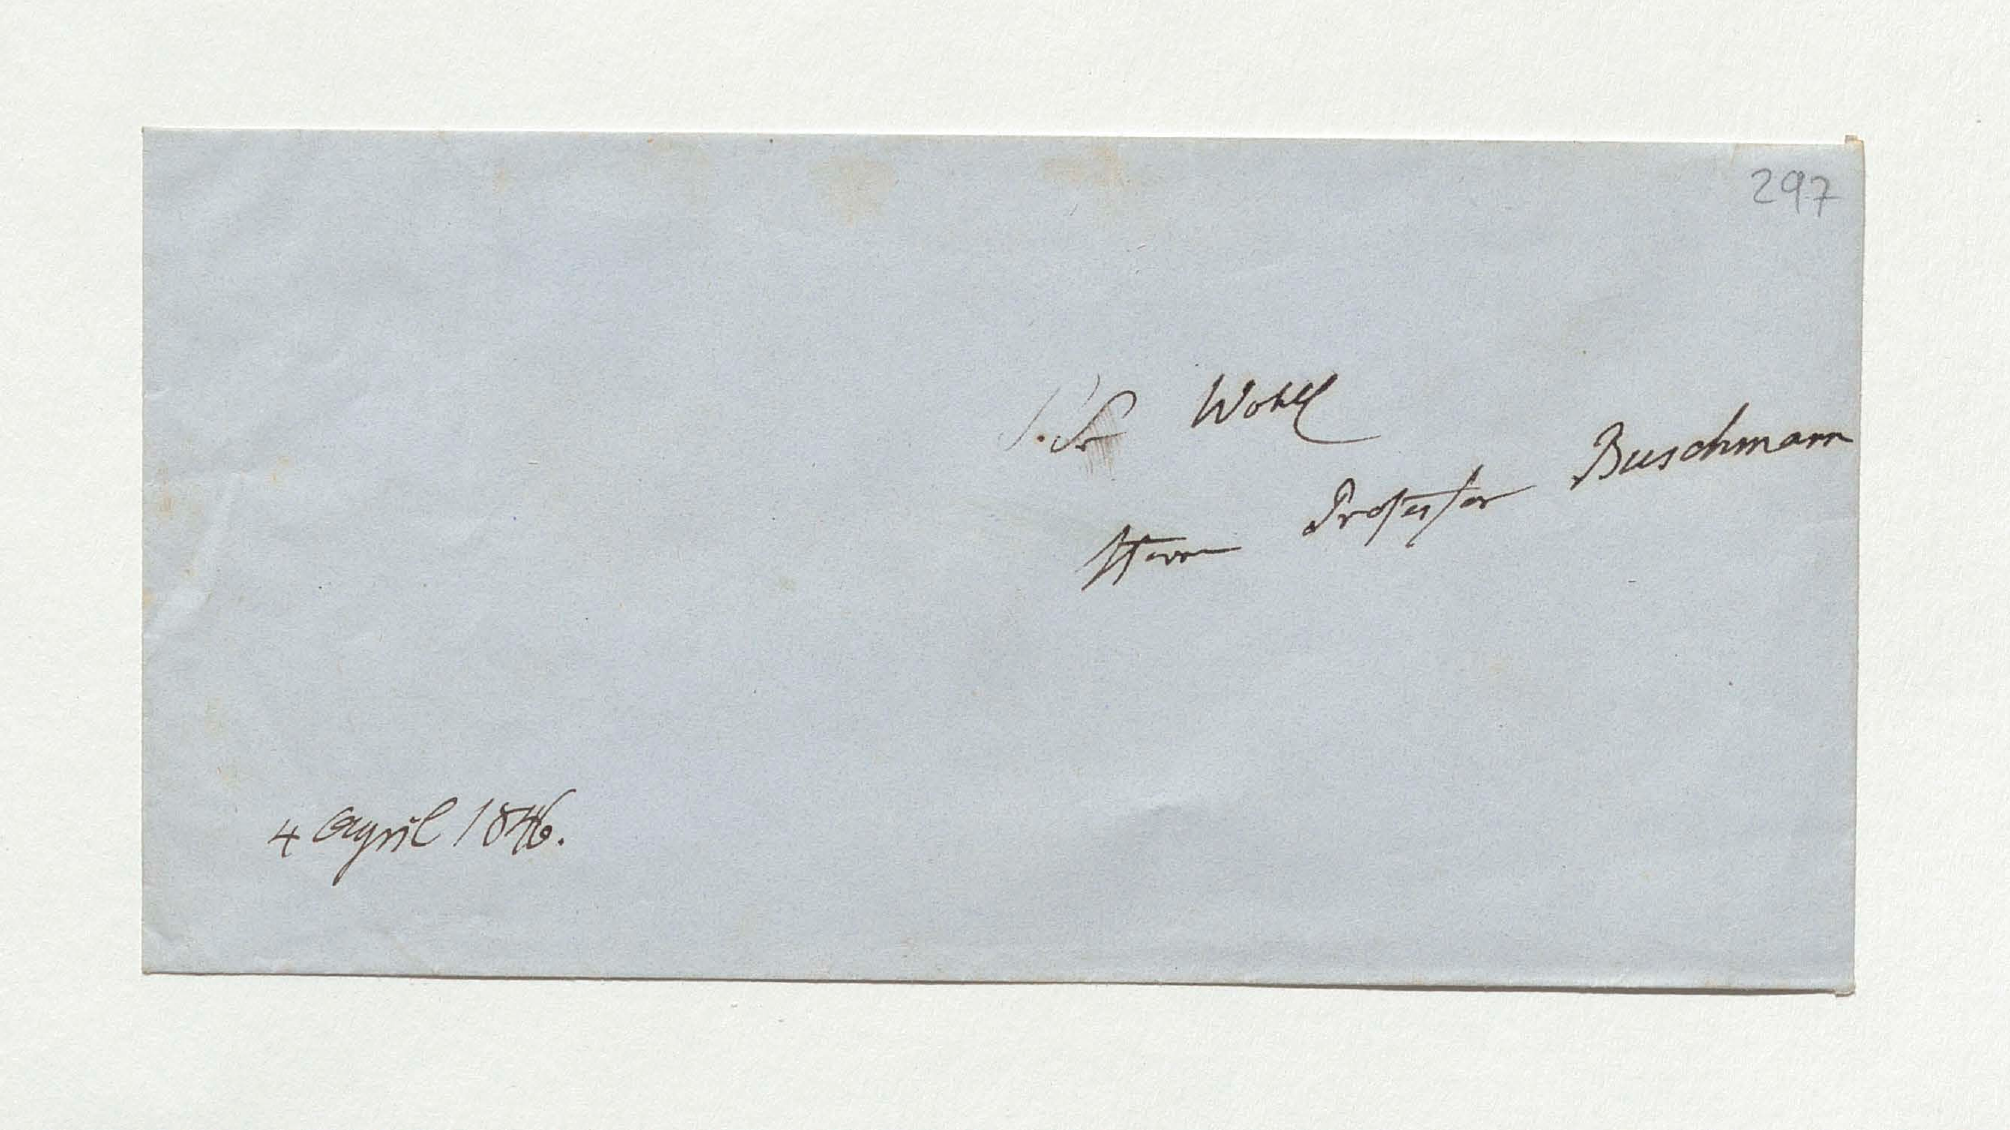 297
S. Sr Wohl
Herrn Professor Buschmann
4 April 1846.